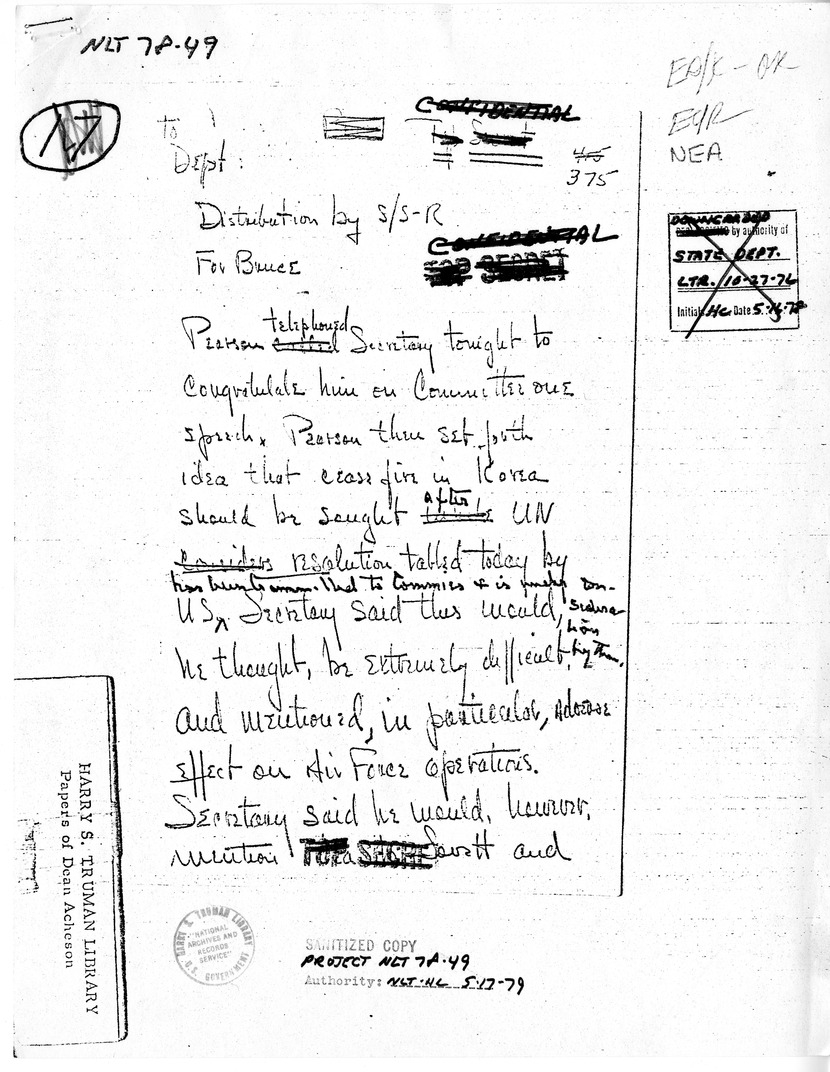 NLT 78-49
EP/K - OK
EUR
NEA
17
To
Dept:
CONFIDENTIAL
415
375
Distribution by S/S-R
CONFIDENTIAL
TOP SECRET
For Bruce
DOWNGRADED
by authority of
STATE DEPT.
LTR. 10-27-76
Initial HC Date 5-16-78
Pearson telephoned Secretary tonight to
congratulate him on Committee one
speech. Pearson then set forth
idea that cease fire in Korea
should be sought after UN
considers resolution tabled today by
has been transmitted to Commies & is under con-
sidera
tion
by them.
US. Secretary said this would,
he thought, be extremely difficult,
and mentioned, in particular, adverse
effect on Air Force operations.
Secretary said he would, however,
mention TOP SECRET Lovett and
HARRY S. TRUMAN LIBRARY
Papers of Dean Acheson
HARRY S. TRUMAN LIBRARY
"NATIONAL
ARCHIVES AND
RECORDS
SERVICE"
U.S. GOVERNMENT
SANITIZED COPY
PROJECT NLT 78-49
Authority: NLT-HC 5-17-79